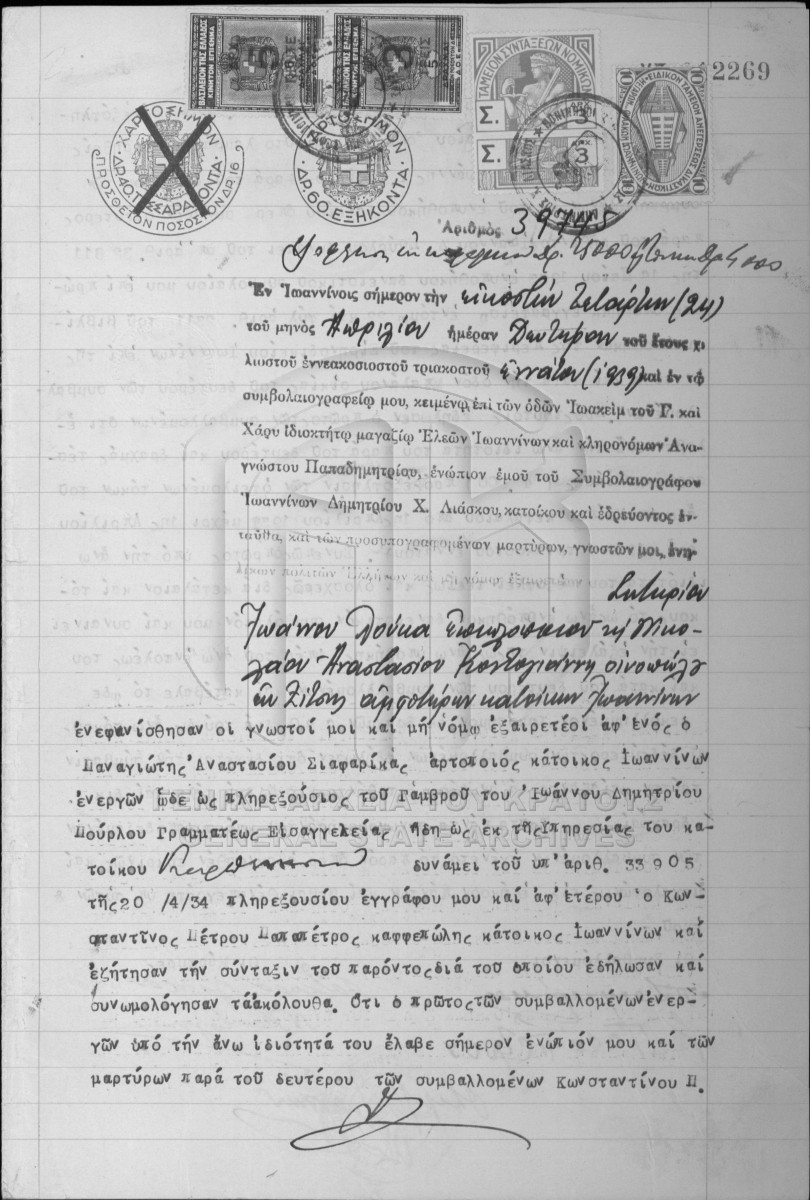 2269
ΒΑΣΙΛΕΙΟΝ ΤΗΣ ΕΛΛΑΔΟΣ
ΚΙΝΗΤΟΝ ΕΠΙΣΗΜΟΝ
5
ΠΕΝΤΕ
ΒΑΣΙΛΕΙΟΝ ΤΗΣ ΕΛΛΑΔΟΣ
ΚΙΝΗΤΟΝ ΕΠΙΣΗΜΟΝ
3
ΤΡΕΙΣ
ΤΑΜΕΙΟΝ ΣΥΝΤΑΞΕΩΝ ΝΟΜΙΚΩΝ
Σ. 3
Σ. 3
100
ΧΑΡΤΟΣΗΜΟΝ
ΔΡ. 40. ΤΕΣΣΑΡΑΚΟΝΤΑ
ΠΡΟΣΘΕΤΟΝ ΠΟΣΟΣΤΟΝ ΔΡ. 16
ΧΑΡΤΟΣΗΜΟΝ
ΔΡ. 60. ΕΞΗΚΟΝΤΑ
Ἀριθμὸς 39775
Ἐν Ἰωαννίνοις σήμερον τὴν εἰκοστὴν τετάρτην (24)
τοῦ μηνὸς Ἀπριλίου ἡμέραν Δευτέραν τοῦ ἔτους χι
λιοστοῦ ἐννεακοσιοστοῦ τριακοστοῦ ἐννάτου (1939) καὶ ἐν τῷ
συμβολαιογραφείῳ μου, κειμένῳ ἐπὶ τῶν ὁδῶν Ἰωακεὶμ τοῦ Γ. καὶ
Χάρυ ἰδιοκτήτῳ μαγαζίῳ Ἐλεῶν Ἰωαννίνων καὶ κληρονόμων Ἀνα-
γνώστου Παπαδημητρίου, ἐνώπιον ἐμοῦ τοῦ Συμβολαιογράφου
Ἰωαννίνων Δημητρίου Χ. Λιάσκου, κατοίκου καὶ ἑδρεύοντος ἐν-
ταῦθα, καὶ τῶν προσυπογραφομένων μαρτύρων, γνωστῶν μοι, ἐνη-
λίκων πολιτῶν Ἑλλήνων καὶ μὴ νόμῳ ἐξαιρετέων Σωτηρίου
Ἰωάννου Λούκα καὶ Νικο-
λάου Ἀναστασίου Κοντογιάννη οἰνοπώλου
ἐκ Ζίτσης ἀμφοτέρων κατοίκων Ἰωαννίνων
ἐνεφανίσθησαν οἱ γνωστοί μοι καί μή νόμῳ ἐξαιρετέοι ἀφ'ἑνός ὁ
Παναγιώτης Ἀναστασίου Σιαφαρίκας ἀρτοποιός κάτοικος Ἰωαννίνων
ἐνεργῶν ὧδε ὡς πληρεξούσιος τοῦ Γαμβροῦ του Ἰωάννου Δημητρίου
Πούρλου Γραμματέως Εἰσαγγελείας ἤδη ὡς ἐκ τῆς Ὑπηρεσίας του κα-
τοίκου δυνάμει τοῦ ὑπ'ἀριθ. 33905
τῆς 20 /4/34 πληρεξουσίου ἐγγράφου μου καί ἀφ'ἑτέρου ὁ Κων-
σταντῖνος Πέτρου Παπαπέτρος καφφεπώλης κάτοικος Ἰωαννίνων καί
ἐζήτησαν τήν σύνταξιν τοῦ παρόντος διά τοῦ ὁποίου ἐδήλωσαν καί
συνωμολόγησαν τά ἀκόλουθα. Ὅτι ὁ πρῶτος τῶν συμβαλλομένων ἐνερ-
γῶν ὑπό τήν ἄνω ἰδιότητά του ἔλαβε σήμερον ἐνώπιόν μου καί τῶν
μαρτύρων παρά τοῦ δευτέρου τῶν συμβαλλομένων Κωνσταντίνου Π.
ΓΕΝΙΚΑ ΑΡΧΕΙΑ ΤΟΥ ΚΡΑΤΟΥΣ
GENERAL STATE ARCHIVES